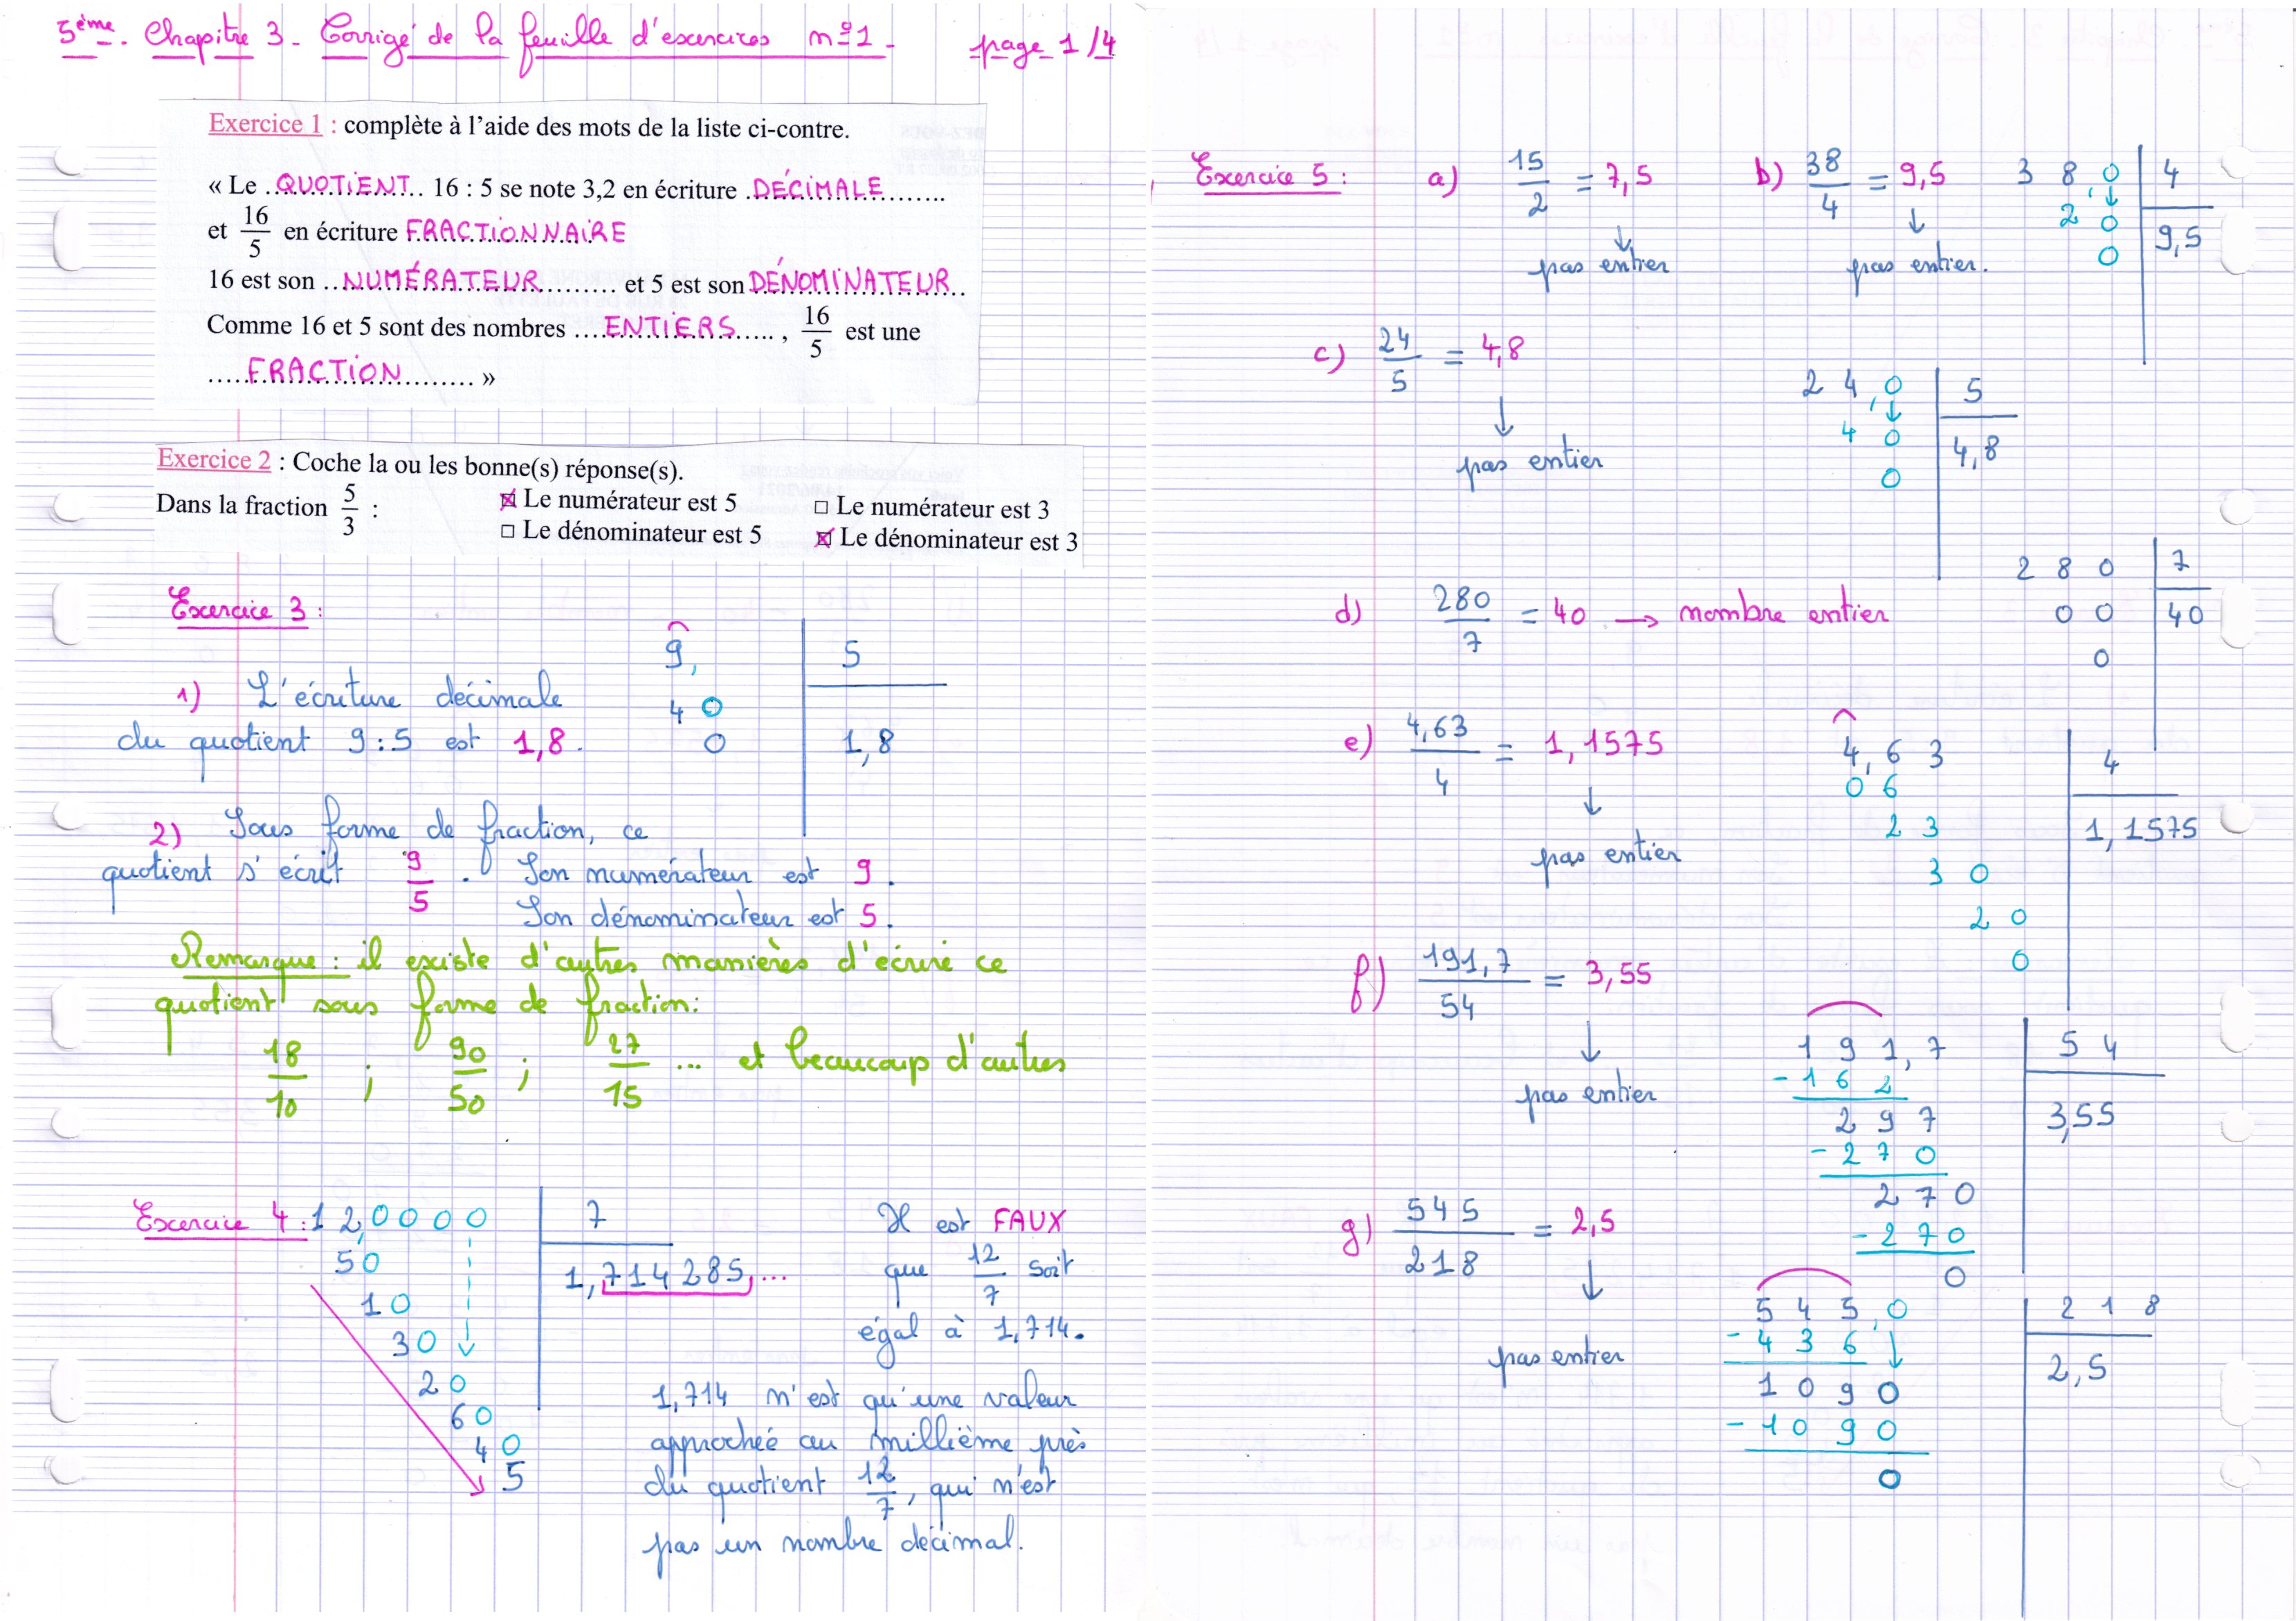 5ème. Chapitre 3 - Corrigé de la feuille d'exercices n°1 - page 1/4
Exercice 1 : complète à l'aide des mots de la liste ci-contre.
« Le ..QUOTIENT.. 16 : 5 se note 3,2 en écriture .DÉCIMALE........
et 16/5 en écriture FRACTIONNAIRE
16 est son ..NUMÉRATEUR.......... et 5 est son DÉNOMINATEUR..
Comme 16 et 5 sont des nombres ....ENTIERS....., 16/5 est une
.....FRACTION.......... »
Exercice 2 : Coche la ou les bonne(s) réponse(s).
Dans la fraction 5/3 :
☒ Le numérateur est 5 □ Le numérateur est 3
□ Le dénominateur est 5 ☒ Le dénominateur est 3
Exercice 3 :
1) L'écriture décimale
du quotient 9 : 5 est 1,8.
9, 5
40
0 1,8
2) Sous forme de fraction, ce
quotient s'écrit 9/5 . Son numérateur est 9.
Son dénominateur est 5.
Remarque : il existe d'autres manières d'écrire ce
quotient sous forme de fraction :
18/10 ; 90/50 ; 27/15 ... et beaucoup d'autres
Exercice 4 : 12,0000 7
50 1,714285,...
10
30
20
60
40
5
Il est FAUX
que 12/7 soit
égal à 1,714.
1,714 n'est qu'une valeur
approchée au millième près
du quotient 12/7, qui n'est
pas un nombre décimal.
Exercice 5 : a) 15/2 = 7,5
pas entier
b) 38/4 = 9,5
pas entier.
38,0 4
20 9,5
0
c) 24/5 = 4,8
pas entier
24,0 5
40 4,8
0
d) 280/7 = 40 → nombre entier
280 7
00 40
0
e) 4,63/4 = 1,1575
pas entier
4,63 4
06
23 1,1575
30
20
0
f) 191,7/54 = 3,55
pas entier
191,7 54
-162
297 3,55
-270
270
-270
0
g) 545/218 = 2,5
pas entier
545,0 218
-436
1090 2,5
-1090
0